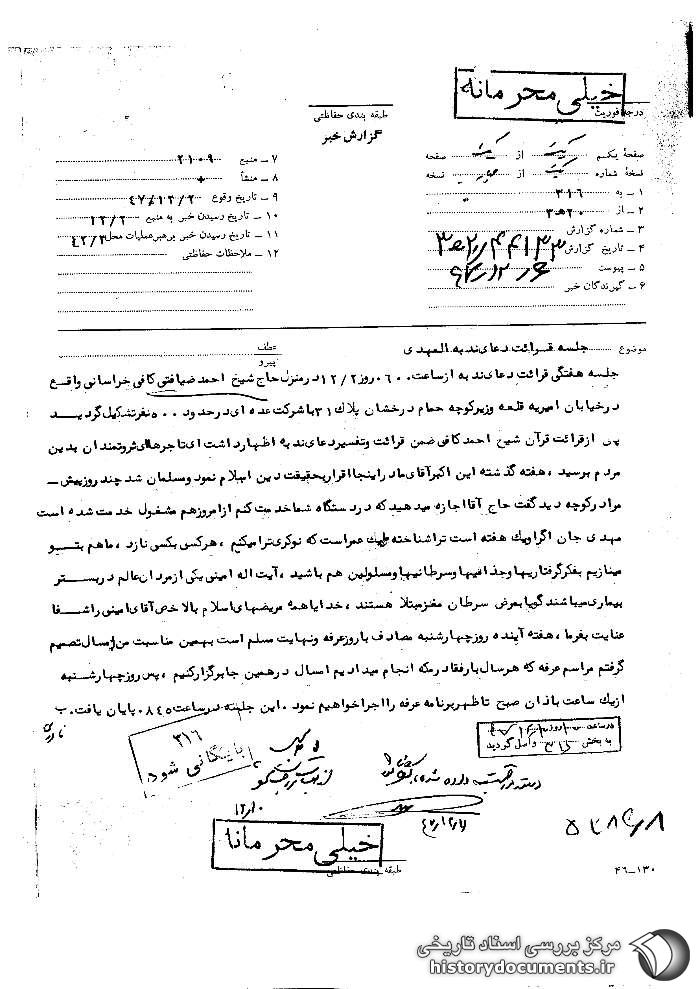 خیلی محرمانه
درجه فوریت
طبقه بندی حفاظتی
گزارش خبر
صفحهٔ یکم از یک صفحه
نسخهٔ شماره یک از نسخه
۱ – به ۳۱۶
۲ – از ۲۰ ه‍ ۳
۳ – شماره گزارش
۴ – تاریخ گزارش
۵ – پیوست
۶ – گیرندگان خبر
۷ – منبع ۲۱۰۹
۸ – منشأ
۹ – تاریخ وقوع ۴۷/۱۲/۲
۱۰ – تاریخ رسیدن خبر به منبع ۱۲/۲
۱۱ – تاریخ رسیدن خبر برهبرعملیات محل
۱۲ – ملاحظات حفاظتی
موضوع جلسه قرائت دعای ندبه المهدی
عطف
پیرو
جلسه هفتگی قرائت دعای ندبه از ساعت ۰۶۰۰ روز ۱۲/۲ در منزل حاج شیخ احمد ضیافتی کافی خراسانی واقع
در خیابان امیریه قلعه وزیر کوچه حمام درخشان پلاک ۳۱ با شرکت عده ای در حدود ۵۰۰ نفر تشکیل گردید
پس از قرائت قرآن شیخ احمد کافی ضمن قرائت و تفسیر دعای ندبه اظهار داشت ای تاجرها ای ثروتمندان بدین
مردم برسید ، هفته گذشته این اکبر آقای ما در اینجا اقرار بحقیقت دین اسلام نمود و مسلمان شد چند روز پیش –
مرا در کوچه دید گفت حاج آقا اجازه میدهید که در دستگاه شما خدمت کنم از امروز هم مشغول خدمت شده است
مهدی جان اگر او یک هفته است ترا شناخته یک عمر است که نوکری ترا میکنیم ، هر کسی بکسی نازد ، ما هم بتو
مینازیم بفکر گرفتاریها و جذامیها و سرطانیها و مسلولین هم باشید ، آیت اله امینی یکی از مردان عالم در بستر
بیماری میباشند گویا بمرض سرطان مغز مبتلا هستند ، خدایا همه مریضهای اسلام بالاخص آقای امینی را شفا
عنایت بفرما ، هفته آینده روز چهارشنبه مصادف با روز عرفه و نهایت مسلم است بهمین مناسبت من امسال تصمیم
گرفتم مراسم عرفه که هر سال با رفقا در مکه انجام میدادیم امسال در همین جا برگزار کنیم ، پس روز چهارشنبه
از یک ساعت باذان صبح تا ظهر برنامه عرفه را اجرا خواهیم نمود . این جلسه در ساعت ۰۸۴۵ پایان یافت . ب
نادری
در ساعت روز
به بخش ۳۱۶ واصل گردید
۳۱۶
بایگانی شود
۱۲/۱۰
۴۷/۱۲/۷
خیلی محرمانه
طبقه بندی حفاظتی
۴۶–۱۳۰
مرکز بررسی اسناد تاریخی
historydocuments.ir